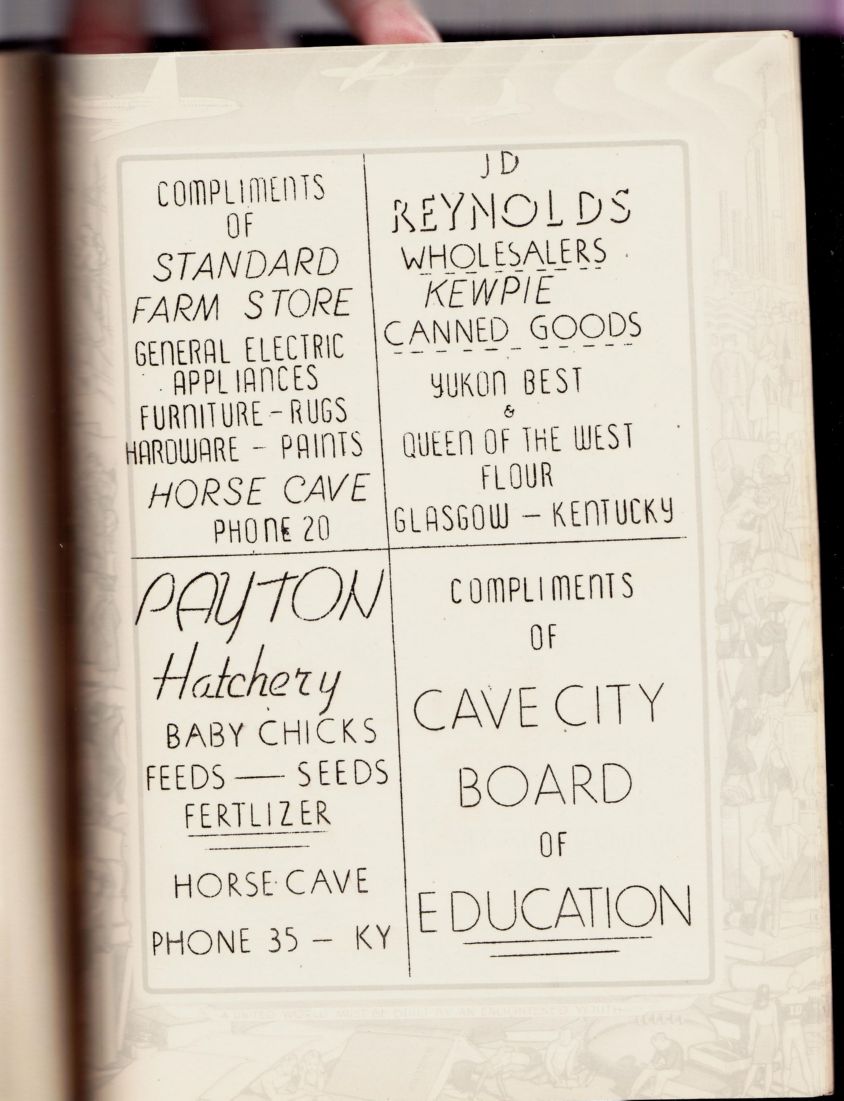 COMPLIMENTS
OF
STANDARD
FARM STORE
GENERAL ELECTRIC
APPLIANCES
FURNITURE - RUGS
HARDWARE - PAINTS
HORSE CAVE
PHONE 20
J D
REYNOLDS
WHOLESALERS
KEWPIE
CANNED GOODS
YUKON BEST
&
QUEEN OF THE WEST
FLOUR
GLASGOW - KENTUCKY
PAYTON
Hatchery
BABY CHICKS
FEEDS — SEEDS
FERTLIZER
HORSE CAVE
PHONE 35 - KY
COMPLIMENTS
OF
CAVE CITY
BOARD
OF
EDUCATION
A UNITED WORLD MUST BE BUILT BY AN ENLIGHTENED YOUTH